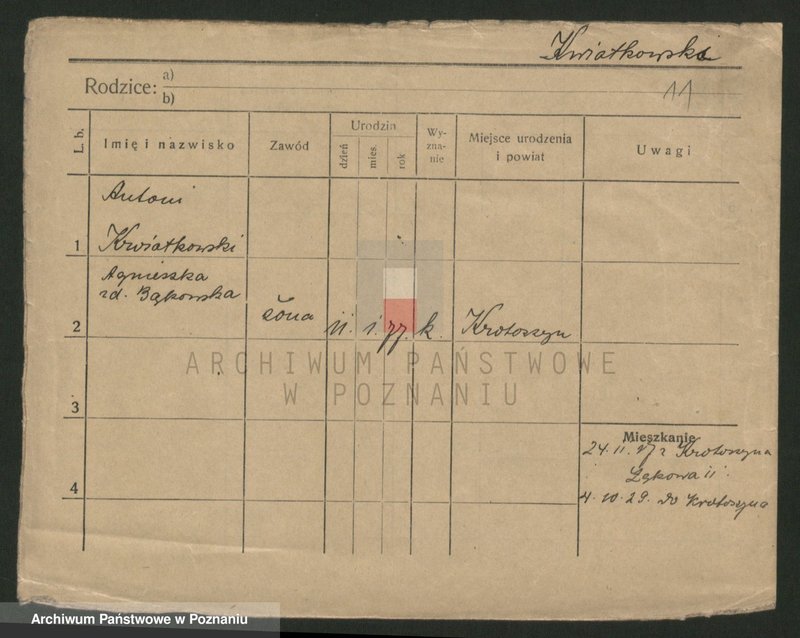 Kwiatkowski
11
Rodzice: a)
b)
L. b.
Imię i nazwisko
Zawód
Urodzin
dzień
mies.
rok
Wy-
zna-
nie
Miejsce urodzenia
i powiat
Uwagi
Antoni
1 Kwiatkowski
Agnieszka
zd. Bąkowska
2 żona 11. 1. 77. k. Krotoszyn
ARCHIWUM PAŃSTWOWE
W POZNANIU
3
Mieszkanie
24. 11. 27 z Krotoszyna
Łąkowa 11.
4
4. 10. 29. do Krotoszyna
Archiwum Państwowe w Poznaniu